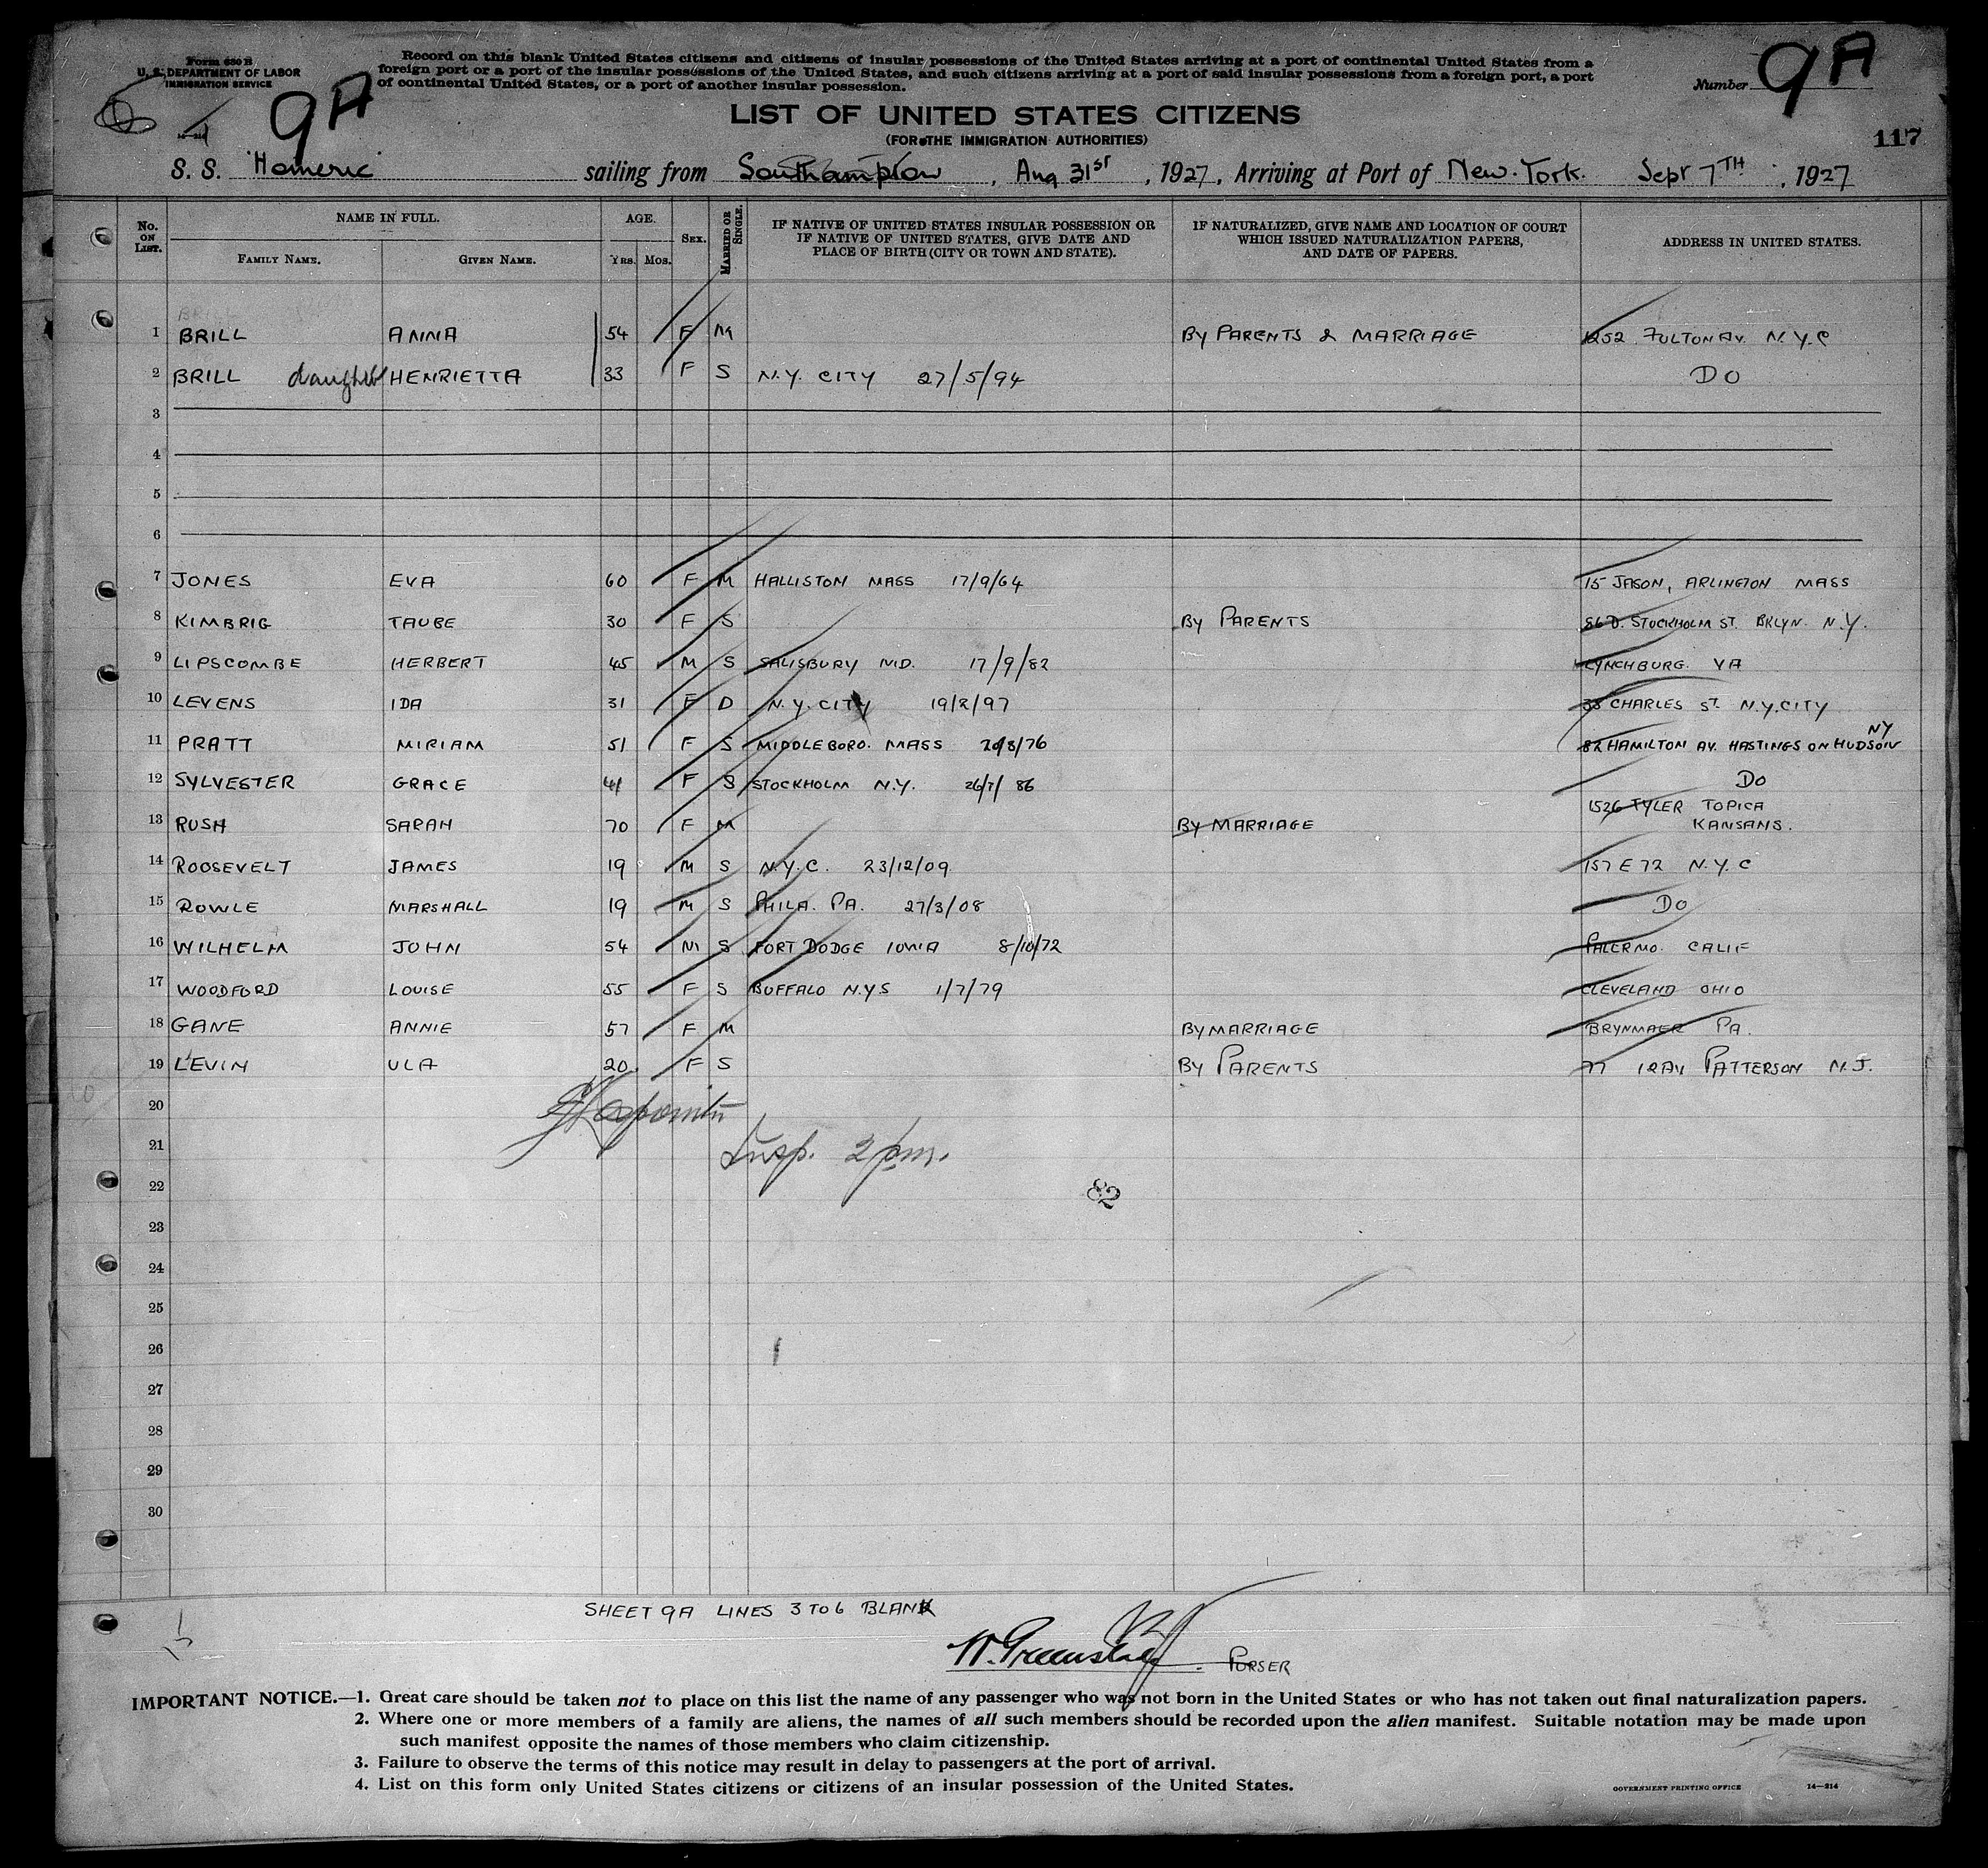 Form 630 B
U. S. DEPARTMENT OF LABOR
IMMIGRATION SERVICE
Record on this blank United States citizens and citizens of insular possessions of the United States arriving at a port of continental United States from a
foreign port or a port of the insular possessions of the United States, and such citizens arriving at a port of said insular possessions from a foreign port, a port
of continental United States, or a port of another insular possession.
9A
Number 9A
LIST OF UNITED STATES CITIZENS
(FOR THE IMMIGRATION AUTHORITIES)
117
S. S. "Homeric" sailing from Southampton, Aug 31st, 1927, Arriving at Port of New York. Sept 7TH, 1927
No. ON LIST. NAME IN FULL. AGE. SEX. MARRIED OR SINGLE. IF NATIVE OF UNITED STATES INSULAR POSSESSION OR IF NATIVE OF UNITED STATES, GIVE DATE AND PLACE OF BIRTH (CITY OR TOWN AND STATE). IF NATURALIZED, GIVE NAME AND LOCATION OF COURT WHICH ISSUED NATURALIZATION PAPERS, AND DATE OF PAPERS. ADDRESS IN UNITED STATES.
FAMILY NAME. GIVEN NAME. YRS. MOS.
1 BRILL ANNA 54 F M BY PARENTS & MARRIAGE 1252 FULTON AV. N.Y.C
2 BRILL daughter HENRIETTA 33 F S N.Y. CITY 27/5/94 DO
3
4
5
6
7 JONES EVA 60 F M HALLISTON MASS 17/9/64 15 JASON, ARLINGTON MASS
8 KIMBRIG TAUBE 30 F S BY PARENTS 86 D. STOCKHOLM ST. BKLYN. N.Y.
9 LIPSCOMBE HERBERT 45 M S SALISBURY MD. 17/9/82 LYNCHBURG. VA
10 LEVENS IDA 31 F D N.Y. CITY 19/2/97 33 CHARLES ST. N.Y. CITY
11 PRATT MIRIAM 51 F S MIDDLEBORO. MASS 20/8/76 82 HAMILTON AV. HASTINGS ON HUDSON NY
12 SYLVESTER GRACE 41 F S STOCKHOLM N.Y. 26/7/86 DO
13 RUSH SARAH 70 F M BY MARRIAGE 1526 TYLER TOPICA KANSANS.
14 ROOSEVELT JAMES 19 M S N.Y.C. 23/12/09 157 E 72 N.Y.C
15 ROWLE MARSHALL 19 M S PHILA. PA. 27/3/08 DO
16 WILHELM JOHN 54 M S FORT DODGE IOWA 8/10/72 PALERMO. CALIF
17 WOODFORD LOUISE 55 F S BUFFALO N.Y.S 1/7/79 CLEVELAND OHIO
18 GANE ANNIE 57 F M BY MARRIAGE BRYNMAER PA.
19 LEVIN ULA 20 F S BY PARENTS 77 PATTERSON N.J.
20
21 Insp. 2 pm.
22 82
23
24
25
26
27
28
29
30
SHEET 9A LINES 3 TO 6 BLANK
PURSER
IMPORTANT NOTICE.—1. Great care should be taken not to place on this list the name of any passenger who was not born in the United States or who has not taken out final naturalization papers.
2. Where one or more members of a family are aliens, the names of all such members should be recorded upon the alien manifest. Suitable notation may be made upon
such manifest opposite the names of those members who claim citizenship.
3. Failure to observe the terms of this notice may result in delay to passengers at the port of arrival.
4. List on this form only United States citizens or citizens of an insular possession of the United States.
GOVERNMENT PRINTING OFFICE 14—214